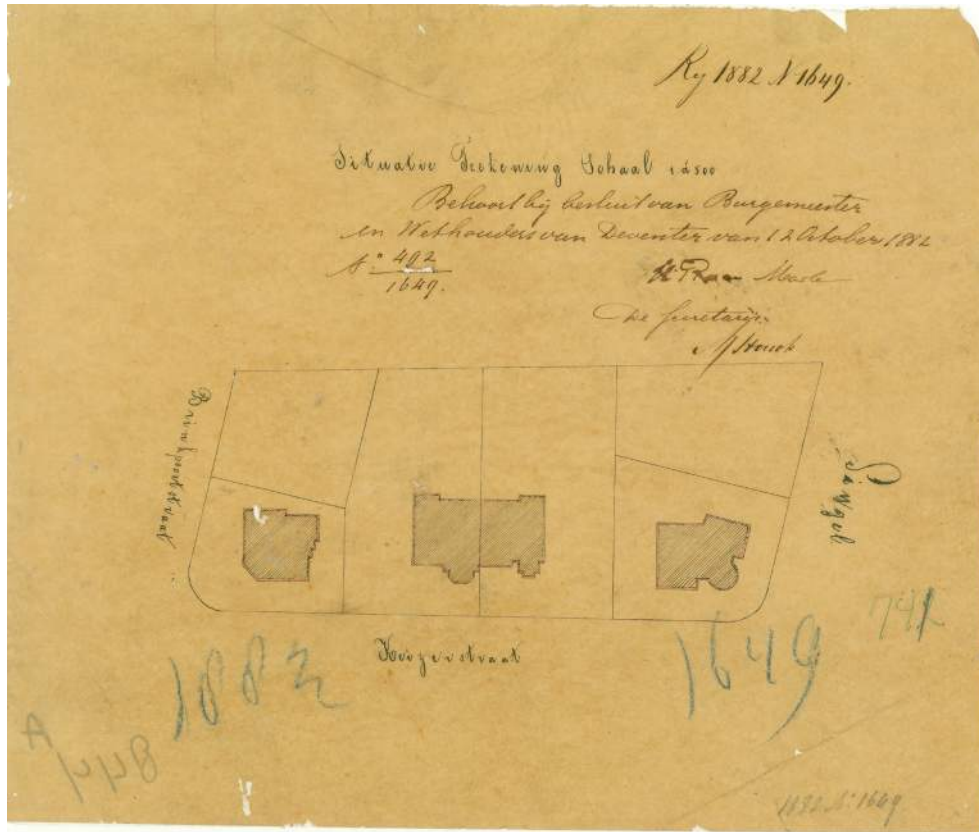 Ry 1882 N 1649.
Situatie Teekening Schaal 1 à 500
Behoort bij besluit van Burgemeester
en Wethouders van Deventer van 12 October 1882
N° 492
1649.
Marle
De Secretaris
Brinkpoortstraat
Singel
Keizerstraat
1882
1649
741
A
1882 N° 1649